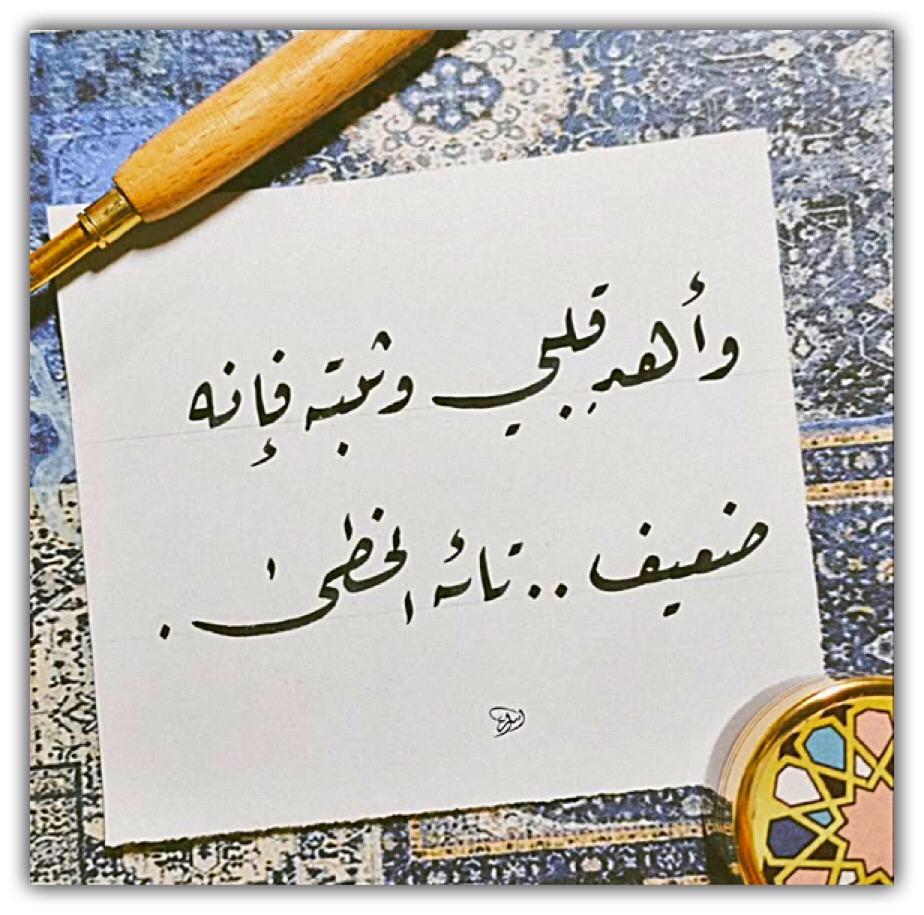 وأهدِ قلبي وثبته فإنه
ضعيف .. تائه الخطى .